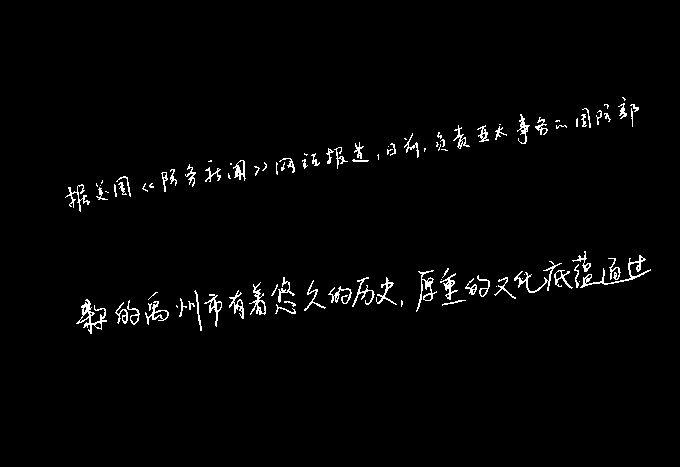 据美国《防务新闻》网站报道,日前,负责亚太事务的国防部
的禹州市有着悠久的历史,厚重的文化底蕴通过